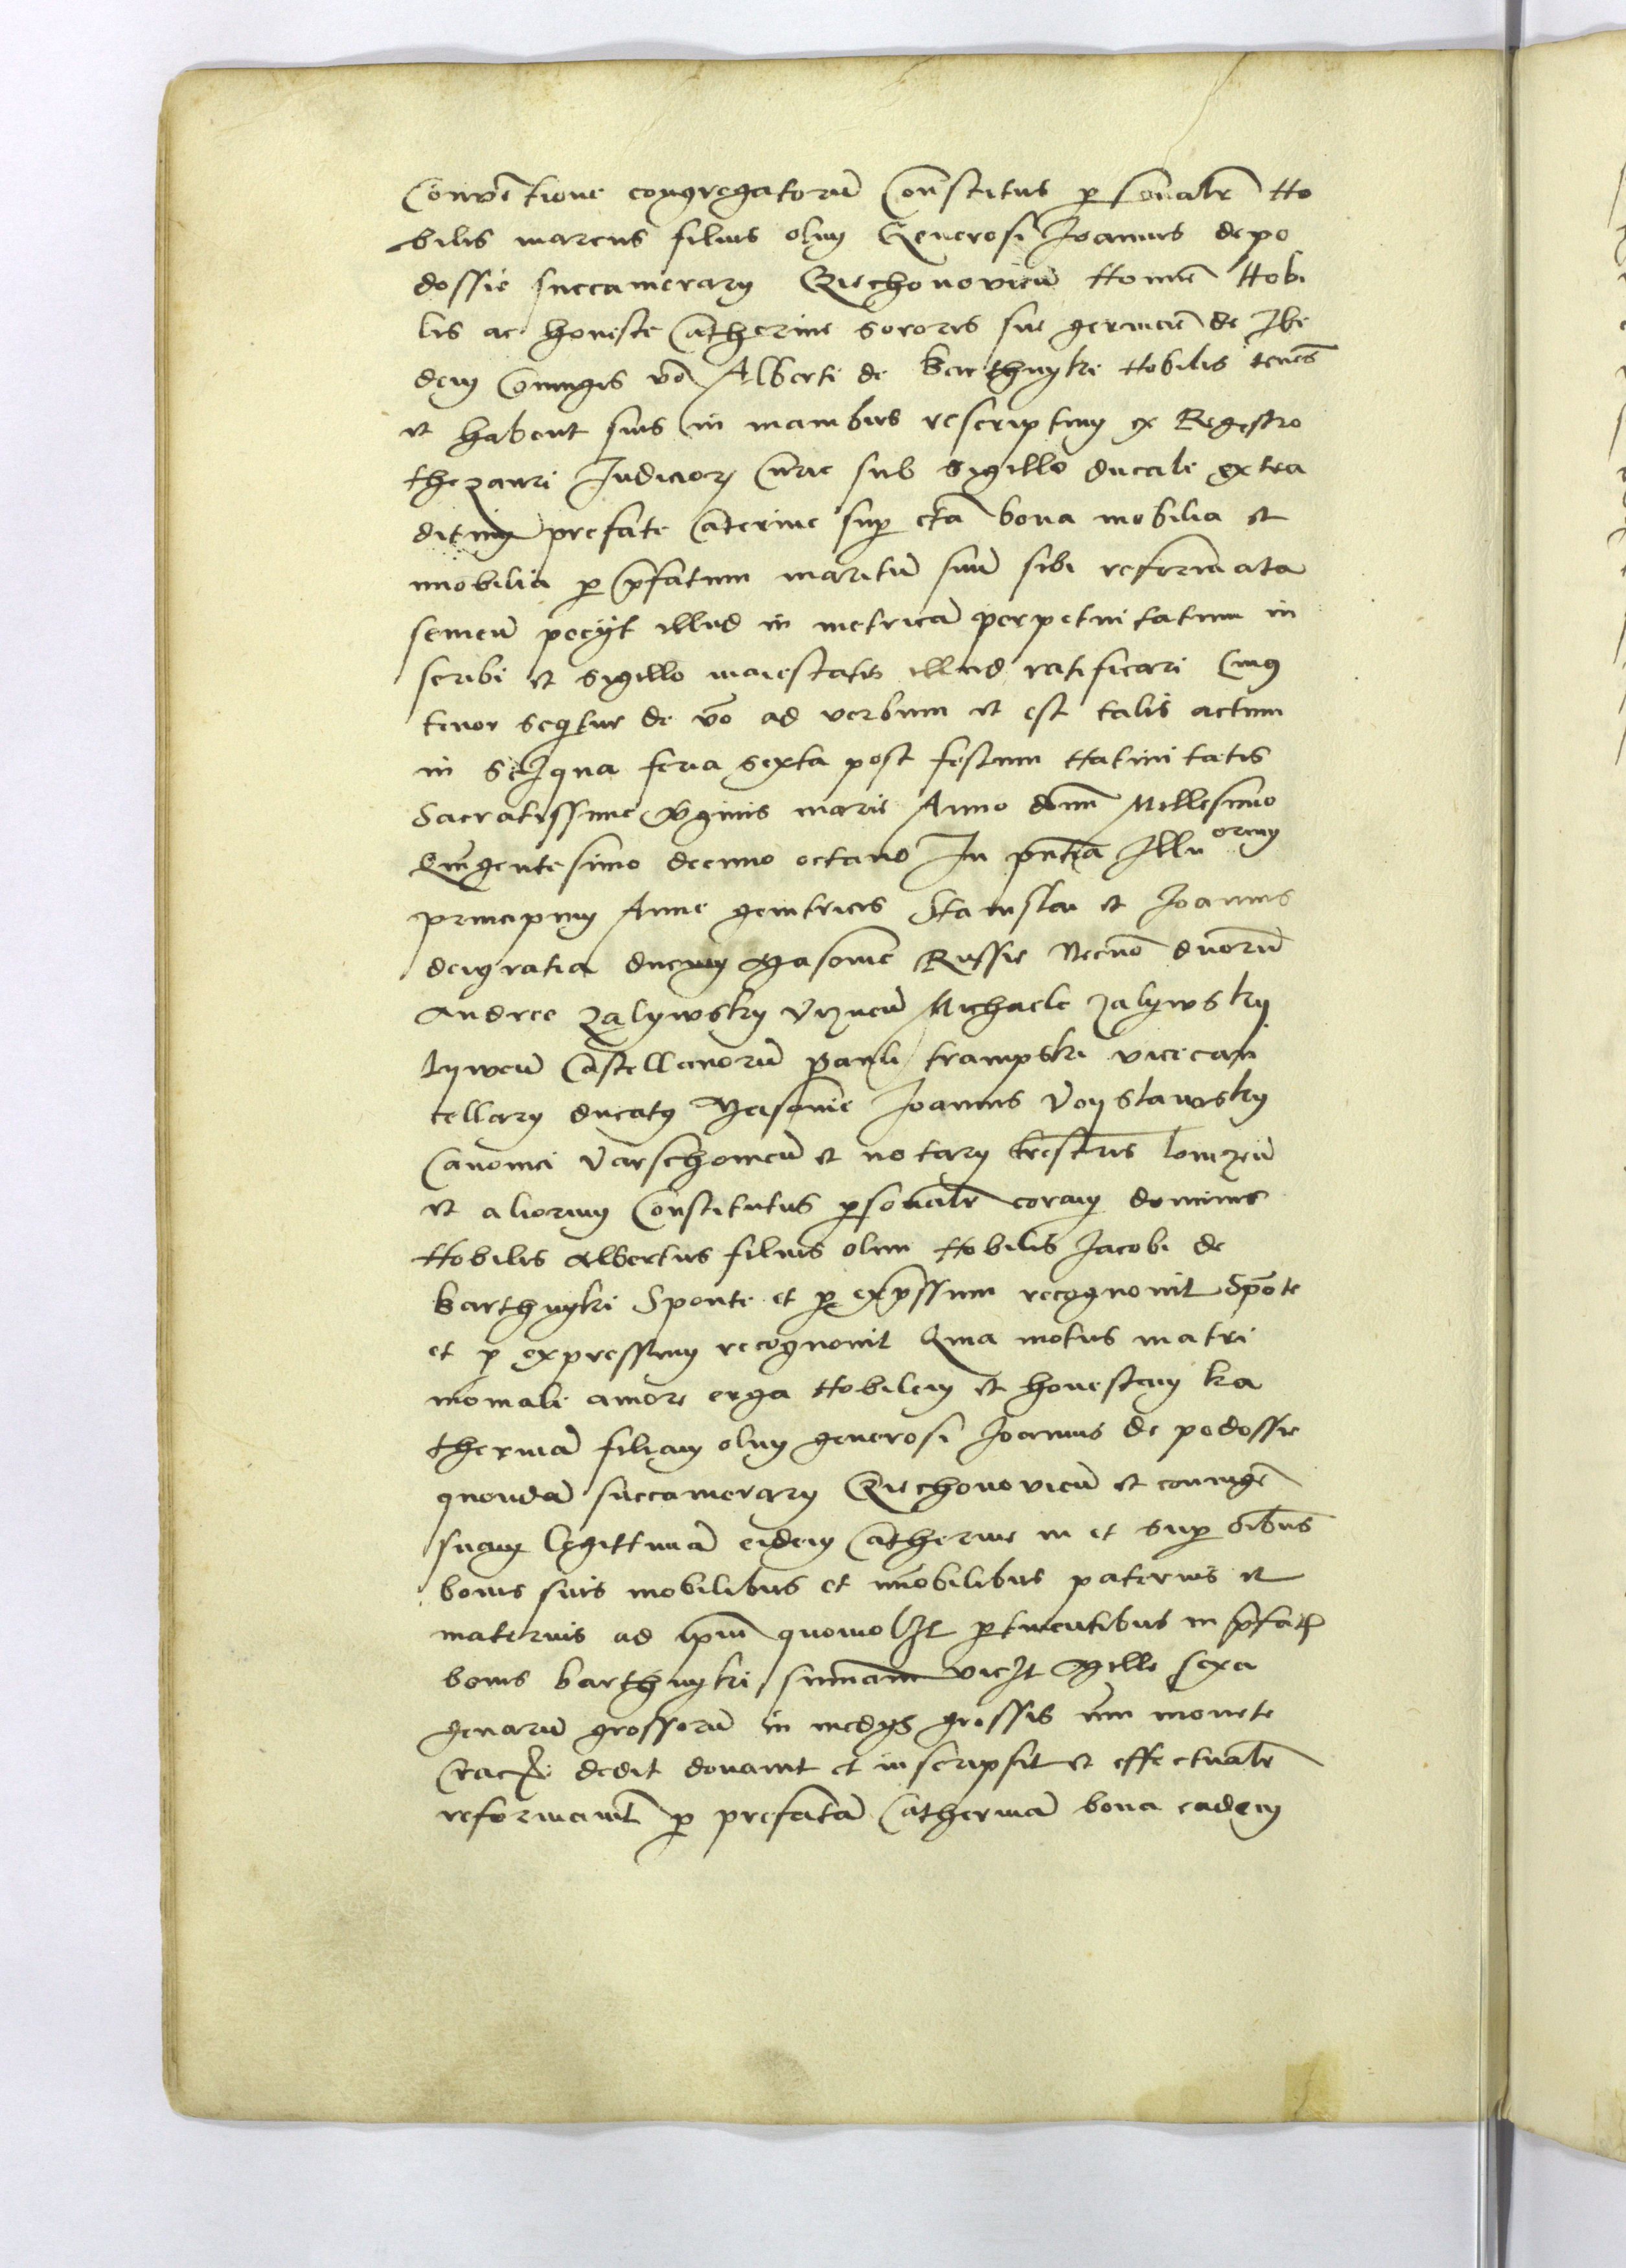 Conventione congregatorũ Constitus p sonalr̃ No
bilis marcus filius olim Generosi Joannis de po
dossie succamerary Czechonovieñ Nomine Nobi
lis ac honeste Catherine sororis sue germane de Ibi
dem Coniugis vō Alberti de barthnyki Nobilis tenēs
et habent suis in manibus rescriptum ex Registro
thezauri Judicior Curie sub sigillo ducale extra
ditum prefate Caterine sup cta bona mobilia et
imobilia p p̃fatum maritũ suũ sibi reformata
semeũ pecijt illud in metricã perpetuitatum in
scribi et sigillo maiestatis illud ratificari Cuius
tenor seqtur de vō ad verbum et est talis actum
in feria sexta post festum Natiuitatis
Sacratissime v̄ginis marie Anno domĩ Millesimo
Quĩgentesimo decimo octavo In pñtia Illu orum
principum Anne genitricis Stanislai et Joannis
dei gratia ducum Masovie Russie Necnō dnorũ
Andree Zalywsky vizneñ Michaele Zalywsky
lyweñ Castellanorũ pauli trampski vicecan
cellary ducatus Masovie Joannis Voyslawsky
Canonici Varschovieñ et notary trēstris lomzeñ
et aliorum Constitutus psonalr̃ coram dominis
Nobilis Albertus filius olim Nobilis Jacobi de
barthnyki Sponte et p exp̃ssum recognovit Spōte
et p expressum recognovit Quia motus matri
moniali amore erga Nobilem et honestam ka
therinã filiam olim generosi Joannis de podossie
quondã succamerary Czechonovieñ et coniugẽ
suam legittimã eidem Catherine in et sup oĩbus
bonis suis mobilibus et īmobilibus paternis et
maternis ad ip̃m quomolit ptinentibus in p̃fatis
bonis barthnyki summam vicz Mille sexa
genarũ grossorũ in medys grossis nm monete
dedit donavit et inscripsit et effectualr̃
reformavit p prefatã Catherinã bona eadem